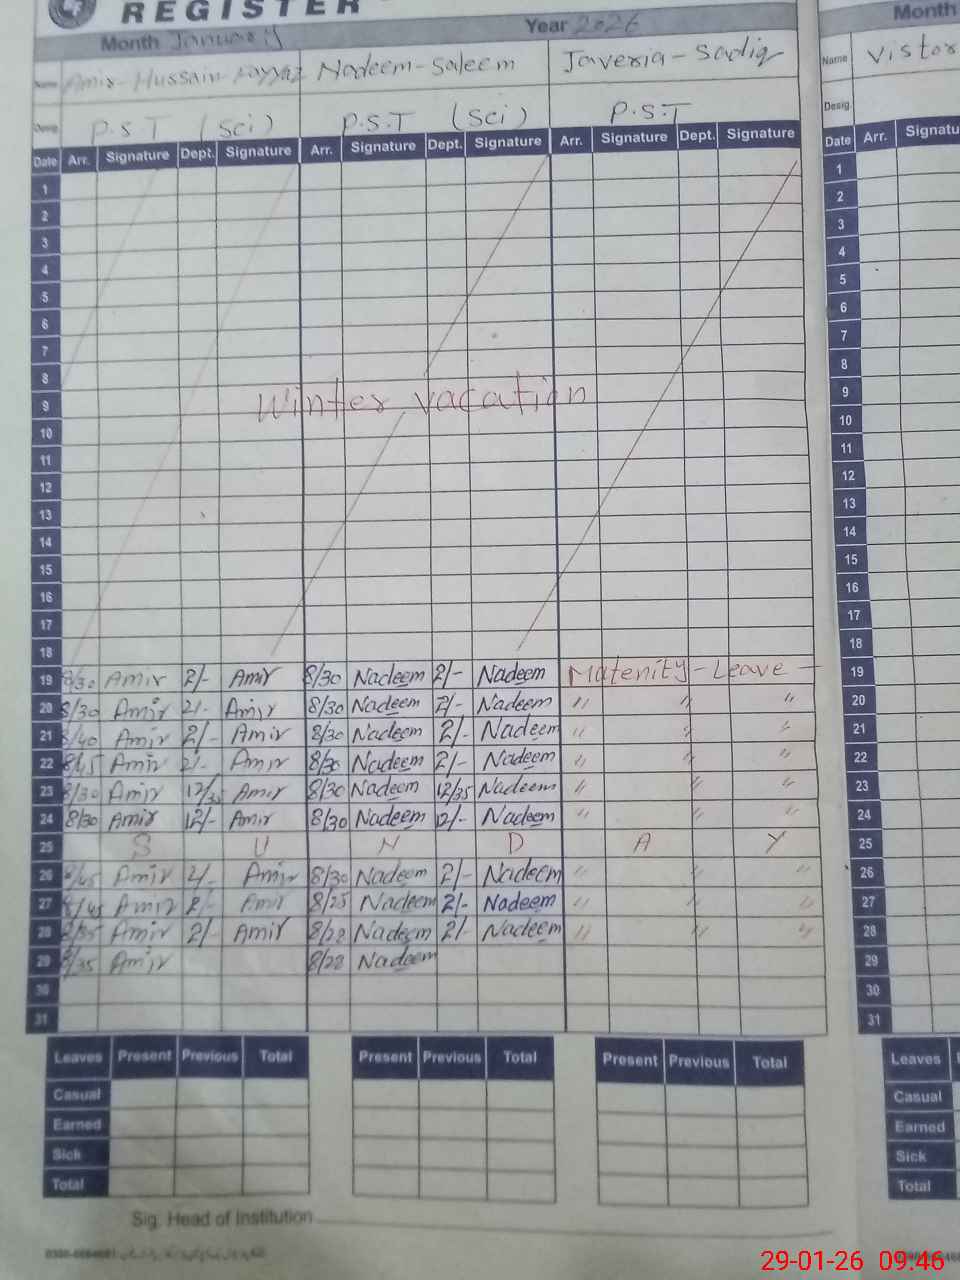 REGISTER
Month January Year 2026 Month
Name Amir-Hussain Fayyaz Nadeem-Saleem Javeria-Sadiq Name Vistor
Desig. P.S.T (Sci) P.S.T (Sci) P.S.T Desig.
Date Arr. Signature Dept. Signature Arr. Signature Dept. Signature Arr. Signature Dept. Signature Date Arr.
1 1
2 2
3 3
4 4
5 5
6 6
7 7
8 8
9 Winter vacation 9
10 10
11 11
12 12
13 13
14 14
15 15
16 16
17 17
18 18
19 8/30 Amir 2/- Amir 8/30 Nadeem 2/- Nadeem Matenity-Leave- 19
20 8/30 Amir 2/- Amir 8/30 Nadeem 2/- Nadeem " " " 20
21 8/40 Amir 2/- Amir 8/30 Nadeem 2/- Nadeem " " " 21
22 8/45 Amir 2/- Amir 8/30 Nadeem 2/- Nadeem " " " 22
23 8/30 Amir 12/35 Amir 8/30 Nadeem 12/35 Nadeem " " " 23
24 8/30 Amir 12/- Amir 8/30 Nadeem 12/- Nadeem " " " 24
25 S U N D A Y 25
26 8/45 Amir 2/- Amir 8/30 Nadeem 2/- Nadeem " " " 26
27 8/45 Amir 2/- Amir 8/25 Nadeem 2/- Nadeem " " " 27
28 8/35 Amir 2/- Amir 8/28 Nadeem 2/- Nadeem " " " 28
29 8/35 Amir 8/28 Nadeem 29
30 30
31 31
Leaves Present Previous Total Present Previous Total Present Previous Total Leaves
Casual Casual
Earned Earned
Sick Sick
Total Total
Sig. Head of Institution
29-01-26 09:46